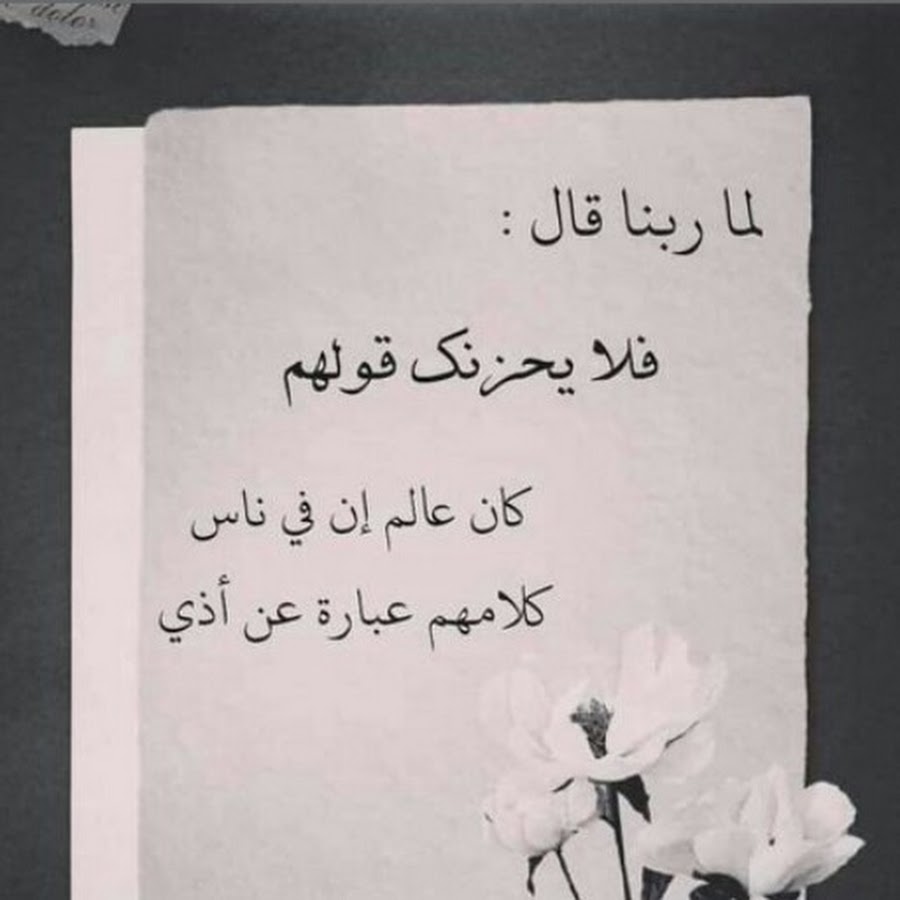 dolor
لما ربنا قال :
فلا يحزنك قولهم
كان عالم إن في ناس
كلامهم عبارة عن أذي